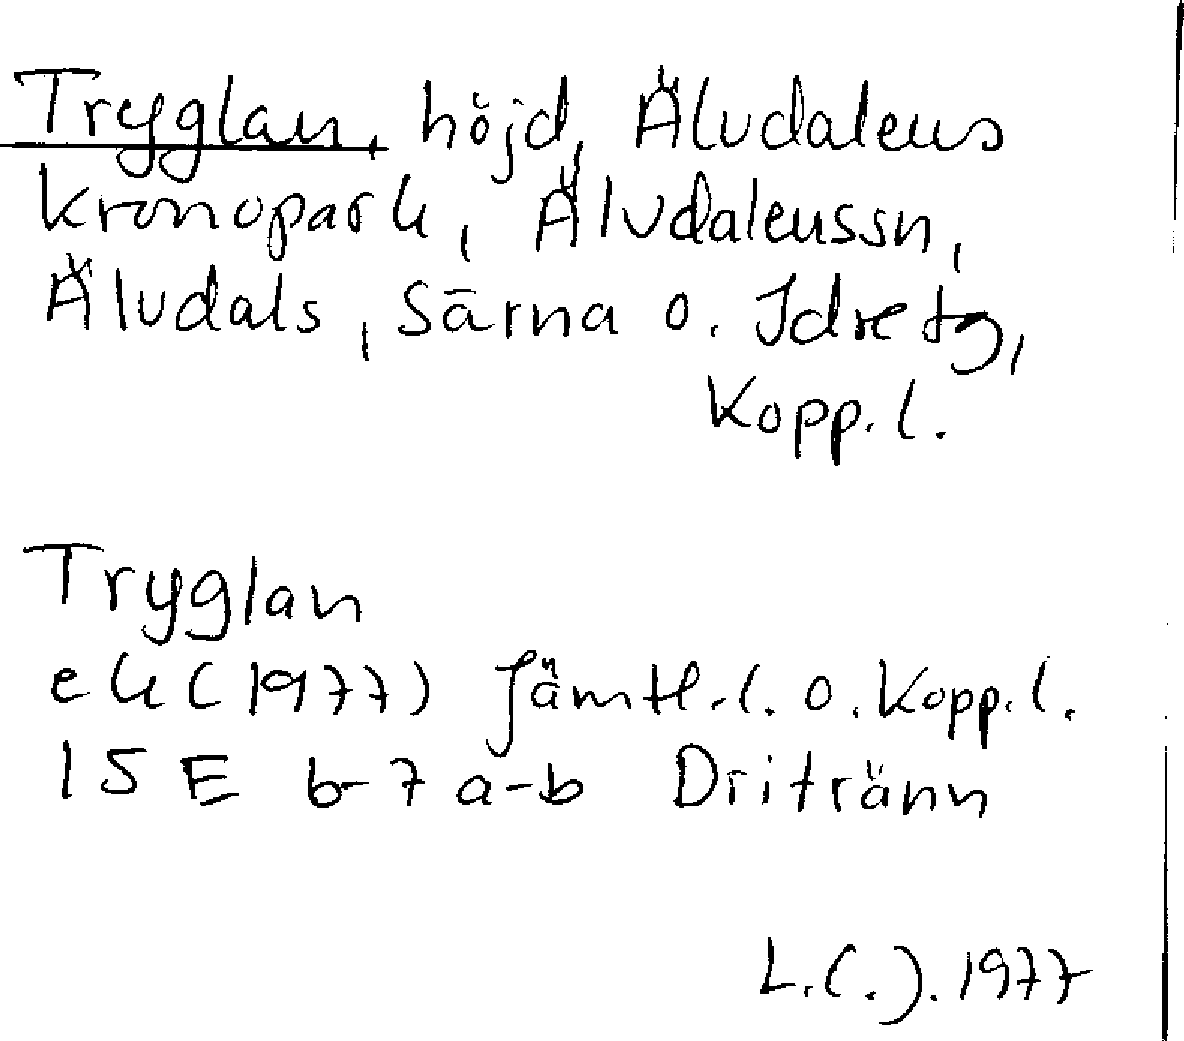 Tryglan, höjd, Älvdalens
kronopark, Älvdalenssn,
Älvdals, Särna o. Idre tg,
Kopp. l.
Tryglan
ek (1977) Jämtl. l. o. Kopp. l.
15 E 6-7 a-b Dritränn
L.(.). 1977